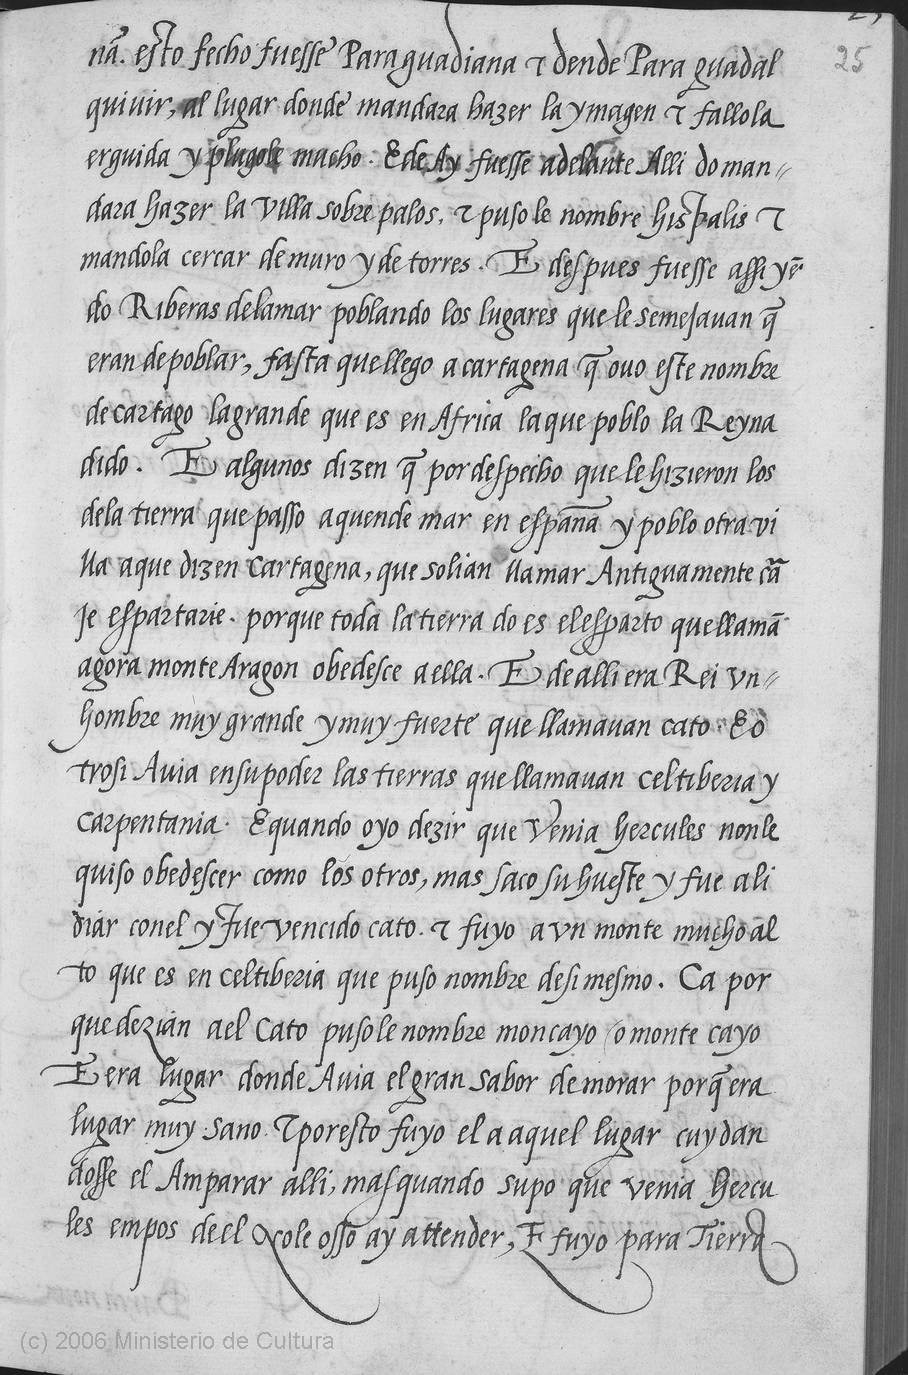 25
nā. esto fecho fuesse Para guadiana τ dende Para guadal
quiuir, al lugar donde mandara hazer la ymagen τ fallola
erguida y plugole macho. E de Ay fuesse adelante Alli do man=
dara hazer la Villa sobre palos, τ puso le nombre hispalis τ
mandola cercar de muro y de torres. E despues fuesse assi yē
do Riberas delamar poblando los lugares que le semejauan q̄
eran de poblar, fasta que llego a cartagena q̄ ouo este nombre
de cartago la grande que es en Africa la que poblo la Reyna
dido. E algunos dizen q̄ por despecho que le hizieron los
dela tierra que passo aquende mar en espāna y poblo otra vi
lla a que dizen Cartagena, que solian llamar Antiguamente cā
je espartarie. porque toda la tierra do es el esparto que llamā
agora monte Aragon obedesce a ella. E de alli era Rei vn=
hombre muy grande y muy fuerte que llamauan cato. E o
trosi Auia en su poder las tierras que llamauan celtiberia y
carpentania. E quando oyo dezir que Venia hercules non le
quiso obedescer como los otros, mas saco su hueste y fue a li
diar con el y fue vencido cato. τ fuyo a vn monte mucho al
to que es en celtiberia que puso nombre de si mesmo. Ca por
que dezian a el Cato puso le nombre moncayo o monte cayo
E era lugar donde Auia el gran sabor de morar porq̄ era
lugar muy sano τ por esto fuyo el a aquel lugar cuydan
dosse el Amparar alli, mas quando supo que venia hercu
les empos de el nole osso ay attender, E fuyo para Tierra
(c) 2006 Ministerio de Cultura